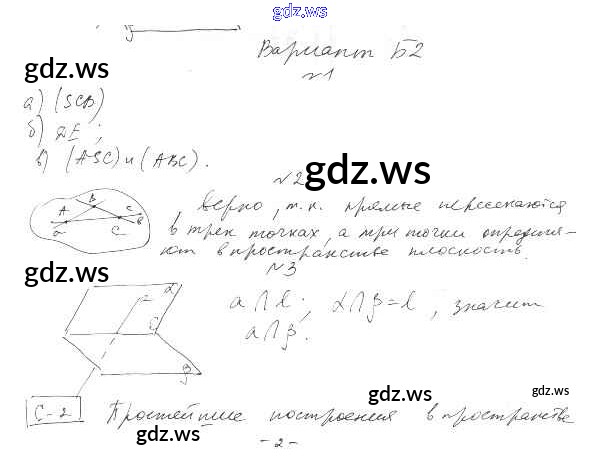 gdz.ws
Вариант Б2
gdz.ws
№1
а) (SCB)
б) DE;
gdz.ws
в) (ASC) и (ABC).
gdz.ws
№2
A B C a b c
Верно, т.к. прямые пересекаются
в трех точках, а три точки определя-
ют в пространстве плоскость.
gdz.ws
gdz.ws
№3
α
a ∩ l; α ∩ β = l, значит
a ∩ β.
β
gdz.ws
С-2 Простейшие построения в пространстве
gdz.ws
- 2 -